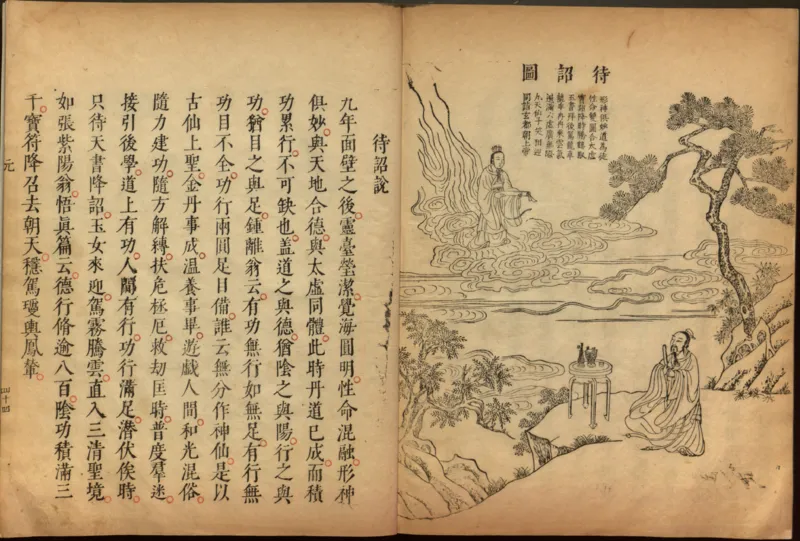 待詔圖
形神俱妙道爲徒
性命雙圓合太虛
降時騎
玉書拜後駕龍車
冉冉乘雲氣
滿六虛廣無
九天仙子笑相迎
同詣玄都朝上帝
待詔說
九年面壁之後靈臺瑩潔覺海圓明性命混融形神
俱妙與天地合德與太虛同體此時丹道已成而積
功累行不可缺也蓋道之與德猶陰之與陽行之與
功猶目之與足鍾離翁云有功無行如無足有行無
功目不全功行兩圓足目備誰云無分作神仙是以
古仙上聖金丹事成溫養事畢遊戲人間和光混俗
隨力建功隨方解縛扶危拯厄救劫匡時普度羣迷
接引後學道上有功人間有行功行滿足潛伏俟時
只待天書降詔玉女來迎駕霧騰雲直入三清聖境
如張紫陽翁悟眞篇云德行脩逾八百陰功積滿三
千寶符降召去朝天穩駕瓊輿鳳輦
元
四十四